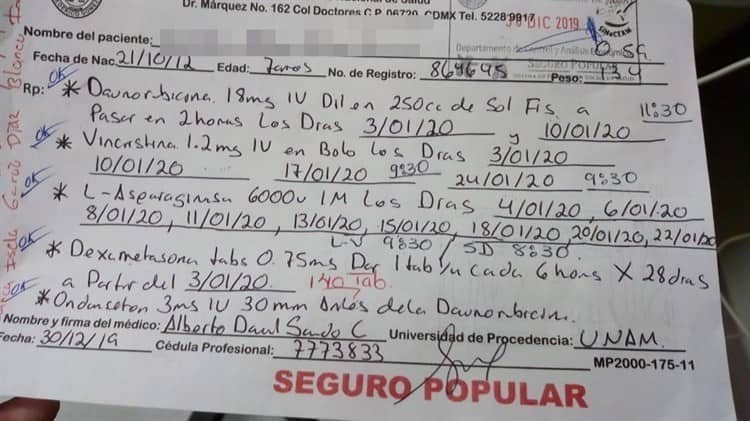 Dr. Márquez No. 162 Col Doctores C.P. 06720, CDMX Tel. 5228 9917
30 DIC 2019
Nombre del paciente:
Departamento de Control y Análisis
SEGURO POPULAR
Fecha de Nac. 21/10/12 Edad: 7 años No. de Registro: 869695 Peso:
Rp: * Daunorbicina 18mg IV Dil en 250cc de Sol Fis. a 11:30
Pasar en 2 horas Los Dias 3/01/20 y 10/01/20
* Vincristina 1.2mg IV en Bolo Los Dias 3/01/20
10/01/20 17/01/20 9:30 24/01/20 9:30
* L-Asparaginasa 6000u IM Los Dias 4/01/20, 6/01/20
8/01/20, 11/01/20, 13/01/20, 15/01/20, 18/01/20, 20/01/20, 22/01/20
L-V 9:30 / SD 8:30
* Dexametasona tabs 0.75mg Dar 1 tab cada 6 hors X 28 dias
a Partir del 3/01/20. 140 Tab.
* Ondanceton 3ms IV 30 mm Antes de la Daunorbicin.
Nombre y firma del médico: Alberto Daul Sando C Universidad de Procedencia: UNAM.
Fecha: 30/12/19 Cédula Profesional: 7773833 MP2000-175-11
SEGURO POPULAR
OK
OK
OK
OK
OK